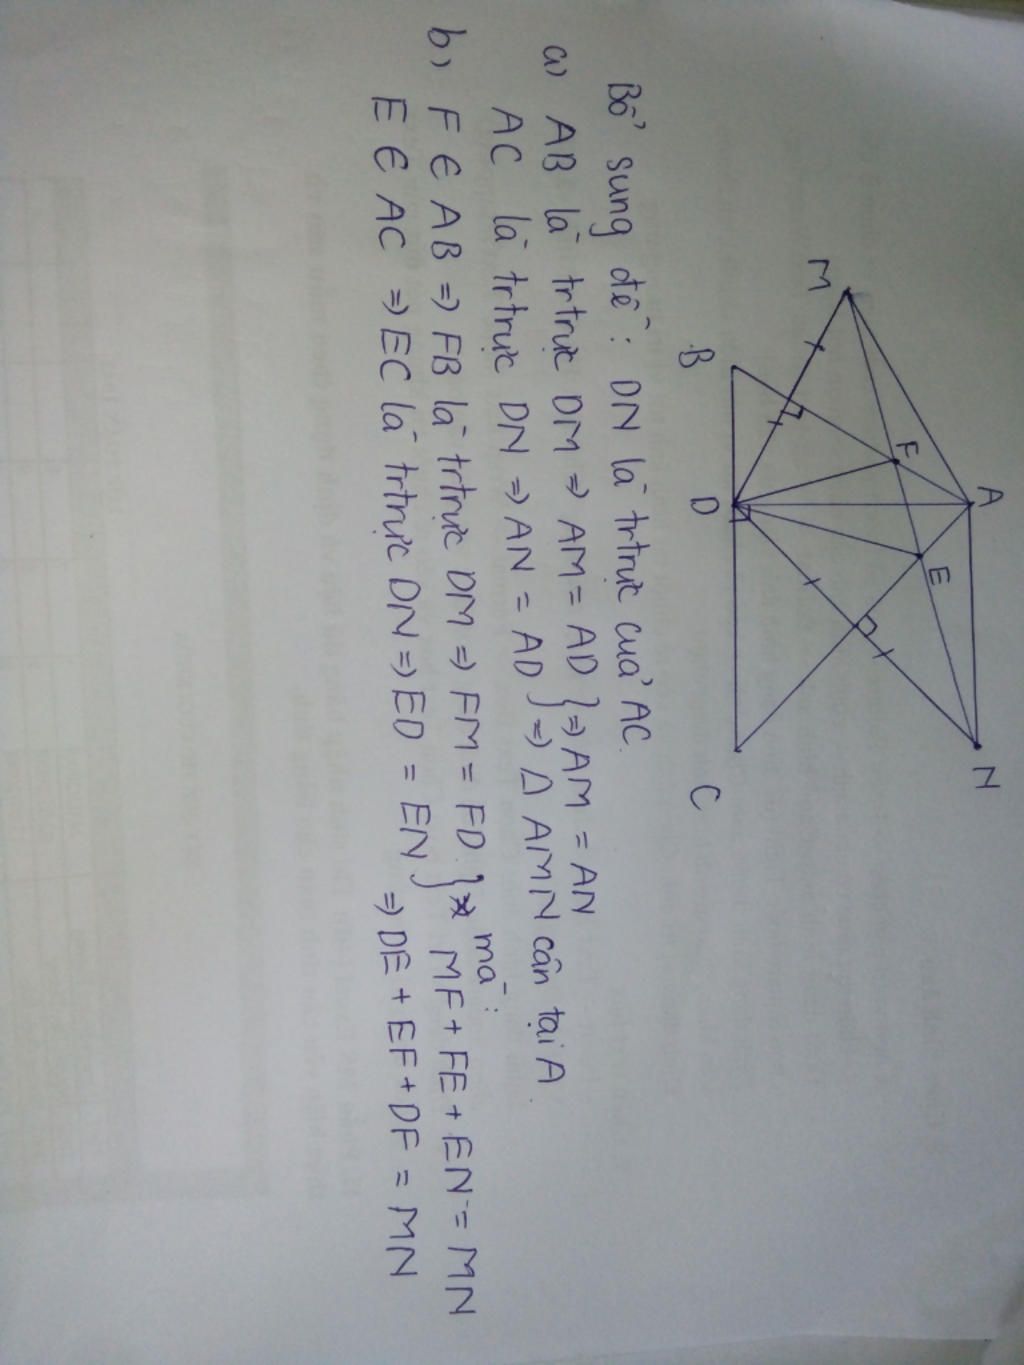 M
A
N
F
E
B
D
C
Bổ sung đề : DN là trtrực của AC.
a) AB là trtrực DM ⇒ AM = AD } ⇒ AM = AN
AC là trtrực DN ⇒ AN = AD } ⇒ Δ AMN cân tại A.
b) F ∈ AB ⇒ FB là trtrực DM ⇒ FM = FD } mà : MF + FE + EN = MN
E ∈ AC ⇒ EC là trtrực DN ⇒ ED = EN } ⇒ DE + EF + DF = MN